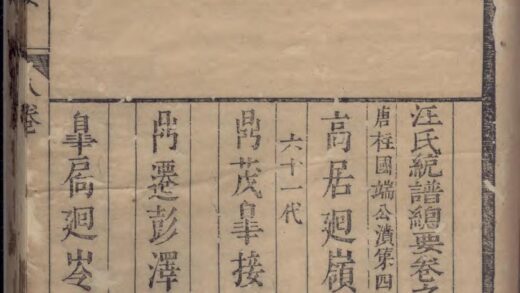 汪氏統譜總要卷之
唐柱國端公濆第四
高居廻嶺
六十一代
鼎茂皐接
鼎遷彭澤
皐扄廻岺
八卷